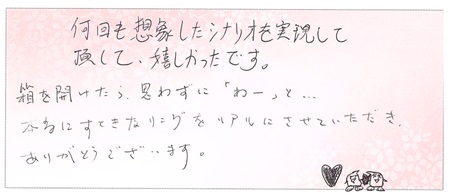 何回も想象したシナリオを実現して
頂して、嬉しかったです。
箱を開けたら、思わずに「わー」と…
本当にすてきなリングをリアルにさせていただき、
ありがとうございます。